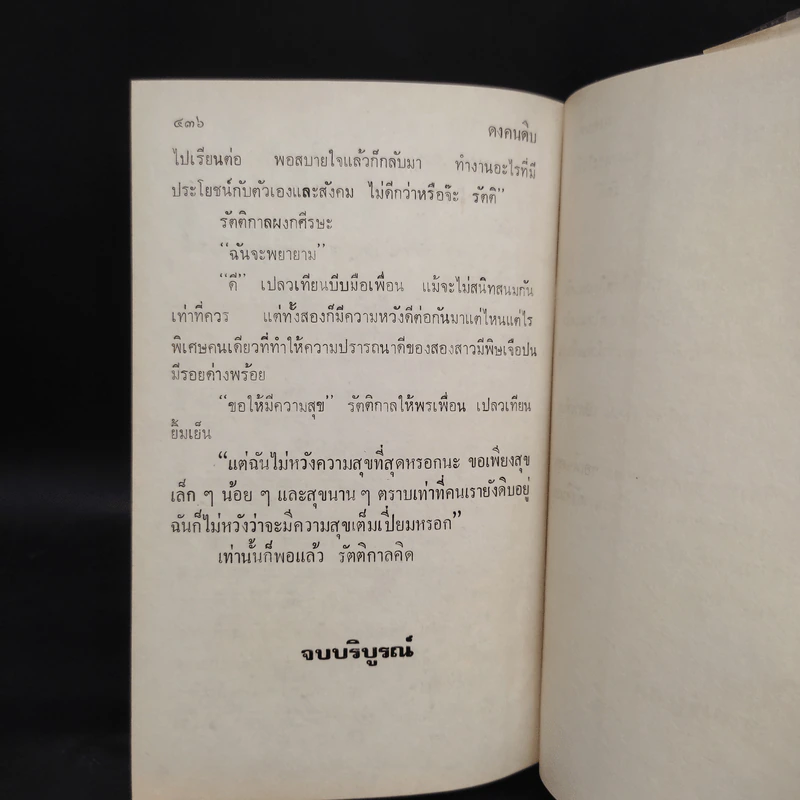 ๕๓๖ ดงคนดิบ
ไปเรียนต่อ พอสบายใจแล้วก็กลับมา ทำงานอะไรที่มี
ประโยชน์กับตัวเองและสังคม ไม่ดีกว่าหรือจ๊ะ รัตติ”
รัตติกาลผงกศีรษะ
“ฉันจะพยายาม”
“ดี” เปลวเทียนบีบมือเพื่อน แม้จะไม่สนิทสนมกัน
เท่าที่ควร แต่ทั้งสองก็มีความหวังดีต่อกันมาแต่ไหนแต่ไร
พิเศษคนเดียวที่ทำให้ความปรารถนาดีของสองสาวมีพิษเจือปน
มีรอยด่างพร้อย
“ขอให้มีความสุข” รัตติกาลให้พรเพื่อน เปลวเทียน
ยิ้มเย็น
“แต่ฉันไม่หวังความสุขที่สุดหรอกนะ ขอเพียงสุข
เล็ก ๆ น้อย ๆ และสุขนาน ๆ ตราบเท่าที่คนเรายังดิบอยู่
ฉันก็ไม่หวังว่าจะมีความสุขเต็มเปี่ยมหรอก”
เท่านั้นก็พอแล้ว รัตติกาลคิด
จบบริบูรณ์